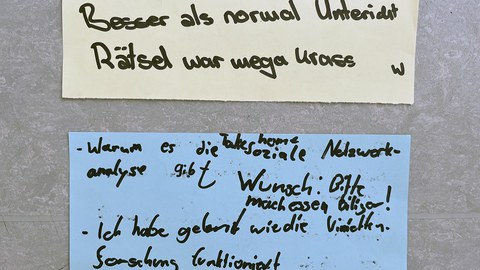 Besser als normal Unterricht
Rätsel war mega krass w
Take home
- Warum es die soziale Netzwerk-
analyse gibt
Wunsch: Bitte
essen
- Ich habe gelernt wie die
Forschung funktioniert